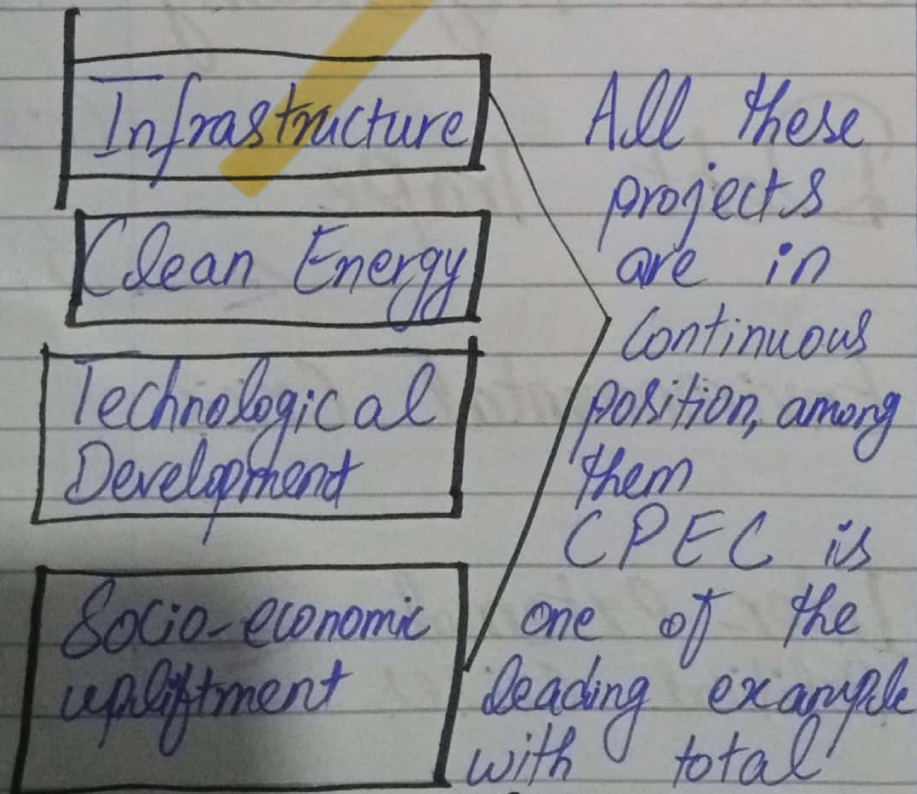 Infrastructure
Clean Energy
Technological
Development
Socio-economic
upliftment
All these
projects
are in
continuous
position, among
them
CPEC is
one of the
leading example
with total